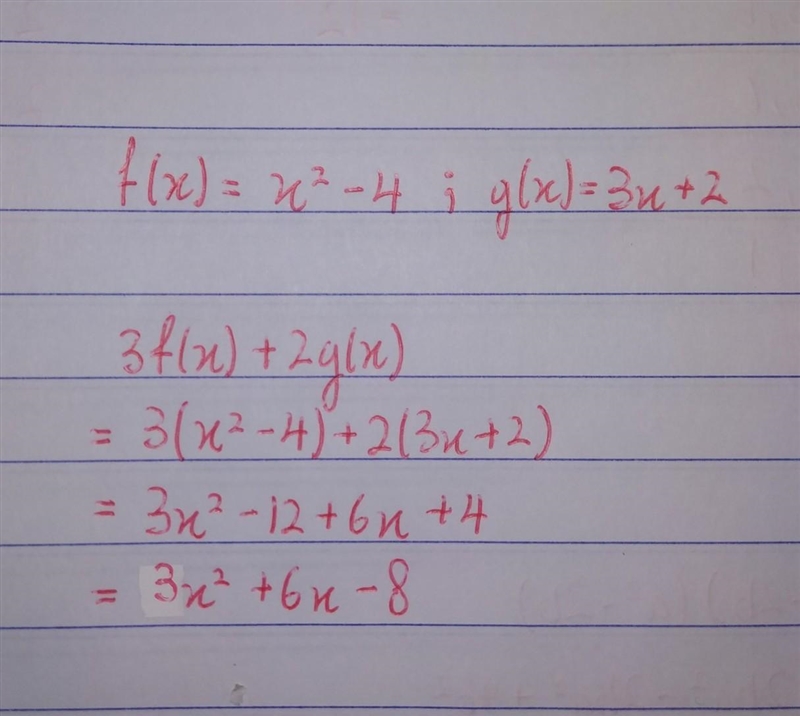 f(x) = x² - 4 ; g(x) = 3x + 2
3f(x) + 2g(x)
= 3(x² - 4) + 2(3x + 2)
= 3x² - 12 + 6x + 4
= 3x² + 6x - 8